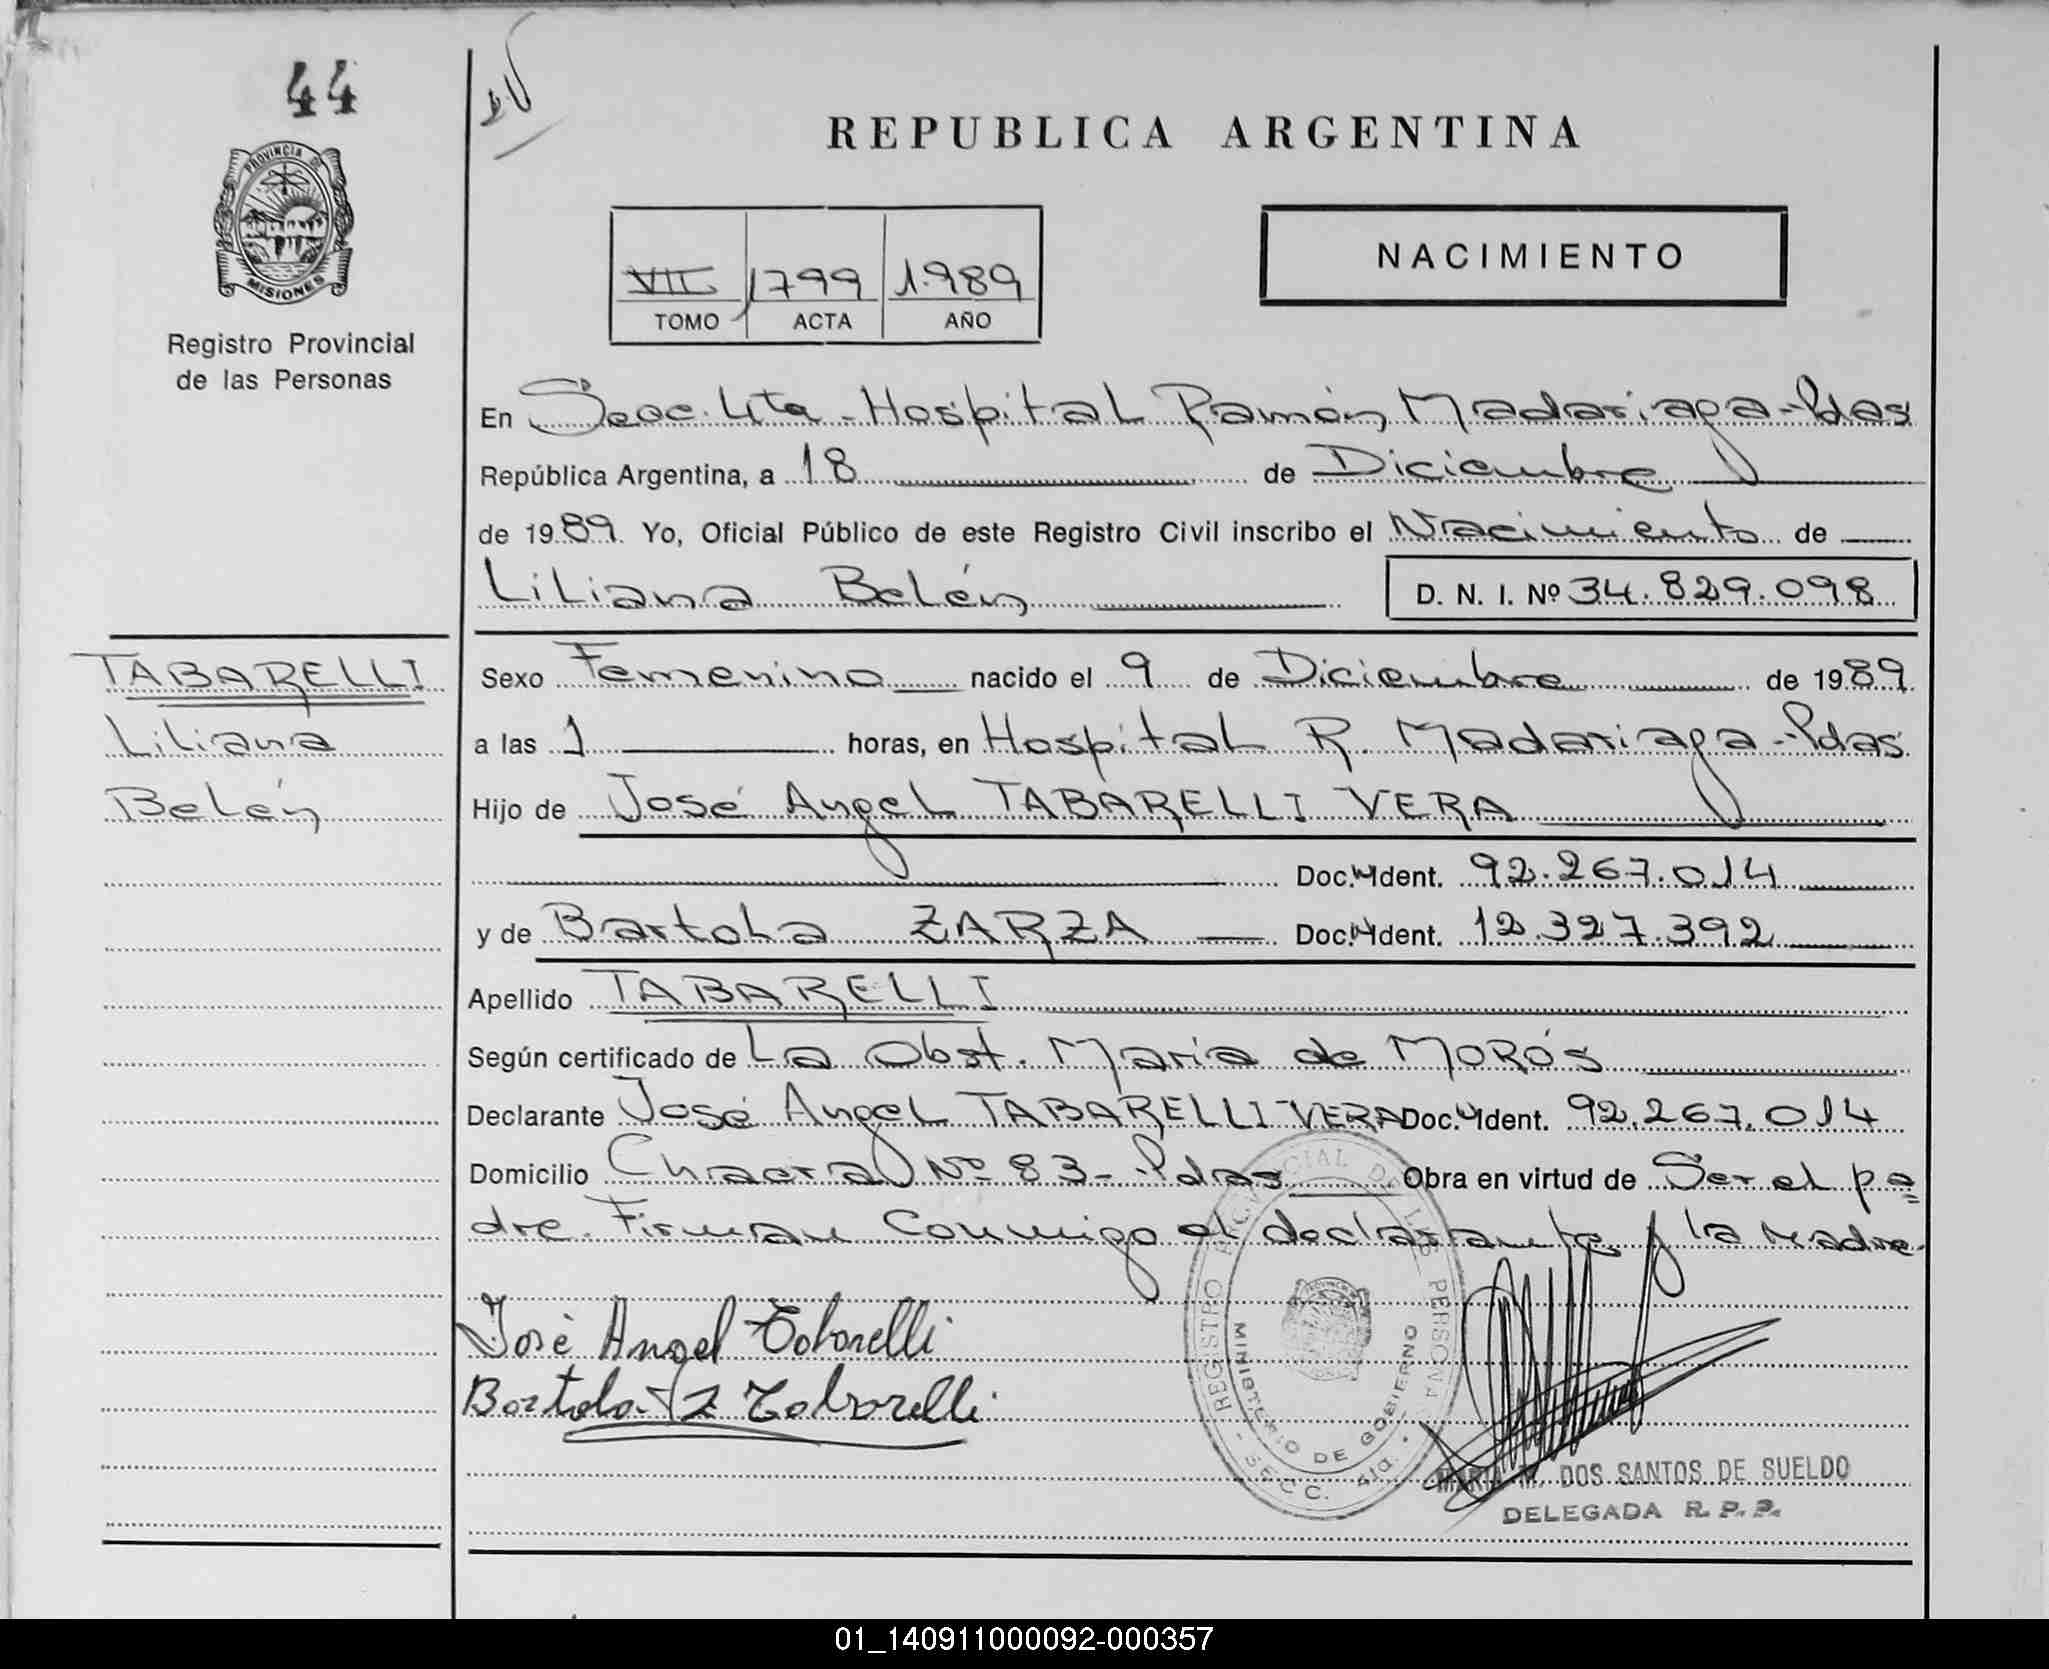 44
REPUBLICA ARGENTINA
PROVINCIA DE
MISIONES
Registro Provincial
de las Personas
VII 1799 1.989
TOMO ACTA AÑO
NACIMIENTO
En Secc. 4ta - Hospital Ramón Madariaga - Pdas
República Argentina, a 18 de Diciembre
de 1989. Yo, Oficial Público de este Registro Civil inscribo el Nacimiento de
Liliana Belén D. N. I. Nº 34.829.098
TABARELLI
Liliana
Belén
Sexo Femenino nacido el 9 de Diciembre de 1989
a las 1 horas, en Hospital R. Madariaga - Pdas
Hijo de José Angel TABARELLI VERA
Doc. Ident. 92.267.014
y de Bartola ZARZA Doc. Ident. 12.327.392
Apellido TABARELLI
Según certificado de La Obst. María de MORÓS
Declarante José Angel TABARELLI VERA Doc. Ident. 92.267.014
Domicilio Chacra Nº 83 - Pdas Obra en virtud de Ser el pa=
dre. Firman Conmigo el declarante y la Madre.
José Angel Tabarelli
Bartola Z Tabarelli
REGISTRO PROVINCIAL DE LAS PERSONAS
MINISTERIO DE GOBIERNO
- SECC. 4ta. -
MARIA M. DOS SANTOS DE SUELDO
DELEGADA R. P. P.
01_140911000092-000357